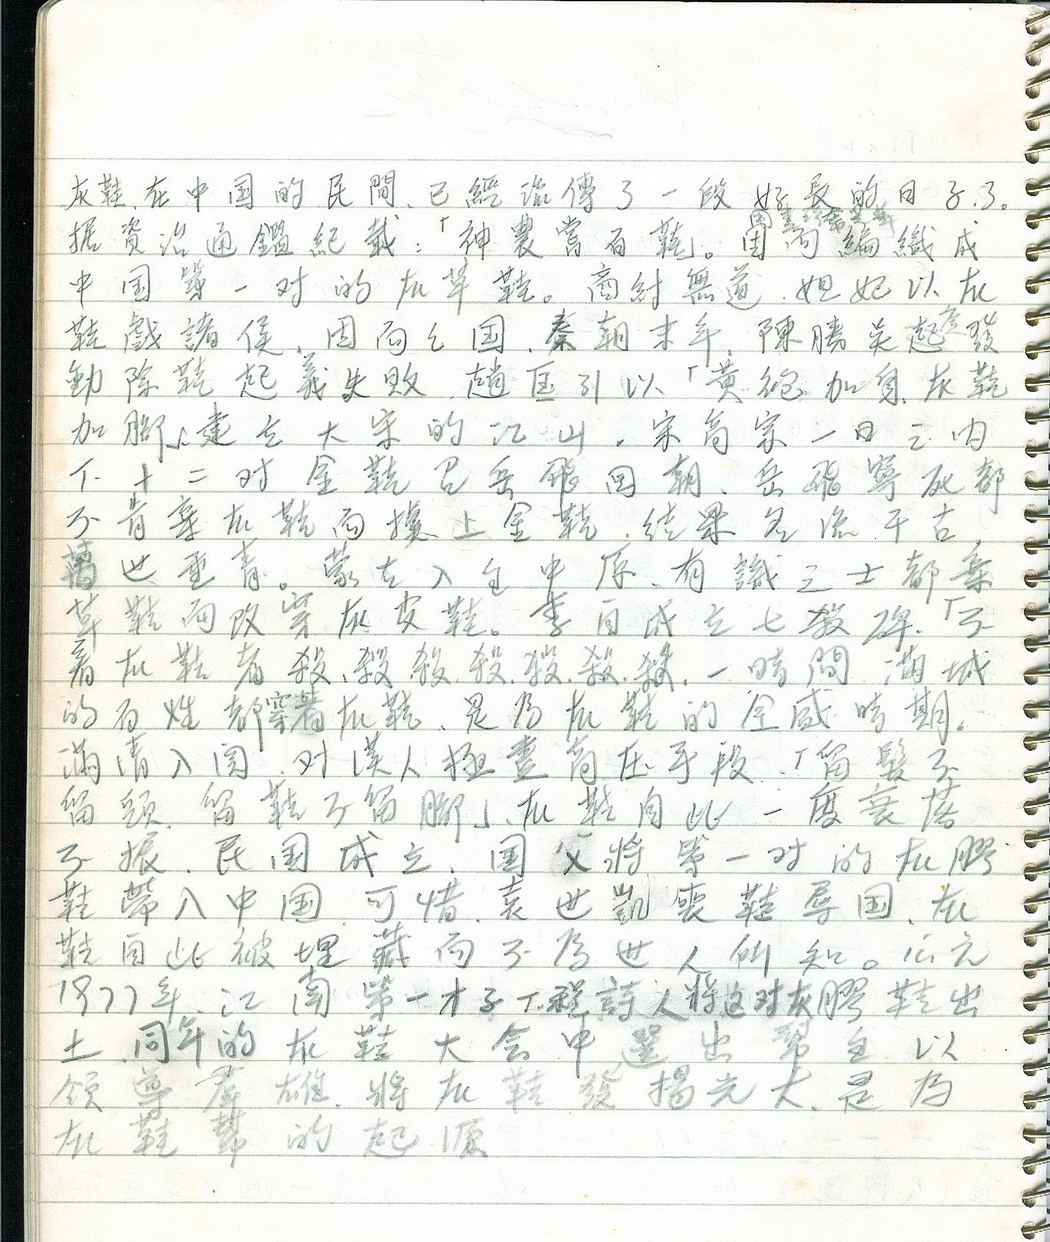 灰鞋在中国的民間、已經流傳了一段好長的日子了。
据資治通鑑紀載:「神農嘗百鞋。因而編織成
中国第一对的灰草鞋。商紂無道、妲妃以灰
鞋戲諸侯、因而亡国、秦朝末年、陳勝吳起發
動除鞋起義失敗、趙匡引以「黄袍加身、灰鞋
加腳」建立大宋的江山。宋高宗一日之內
下十二对金鞋召岳飛回朝、岳飛寧死都
不肯棄灰鞋而換上金鞋、結果名流千古、
萬世垂青。蒙古入主中原、有識之士都棄
草鞋而改穿灰皮鞋。李自成立七殺碑、「不
着灰鞋者殺、殺、殺、殺、殺、殺、殺、一時間、滿城
的百姓都穿著灰鞋、是為灰鞋的全盛時期。
滿清入関、对漢人極盡高圧手段、「留髮不
留頭、留鞋不留腳」、灰鞋自此一度衰落
不振、民国成立、国父將第一对的灰膠
鞋帶入中国、可惜、袁世凱喪鞋辱国、灰
鞋自此被埋藏而不為世人所知。公元
1977年、江南第一才子丁程詩人將这对灰膠鞋出
土、同年的灰鞋大会中選出幫主以
領導羣雄、將灰鞋發揚光大、是為
灰鞋幫的起源